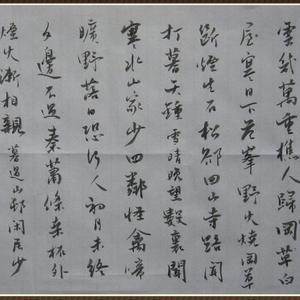 雲幾重樵人歸岡草白
屋寒日下危峯野火燒岡草
斷煙生石松卻回山寺路聞
打暮天鐘雪晴晚望數裏聞
寒水山家少四鄰怪禽啼
曠野落日恐行人初月未終
夕邊不過秦蕭條桑柘外
煙火漸相親暮過山邨閒居少